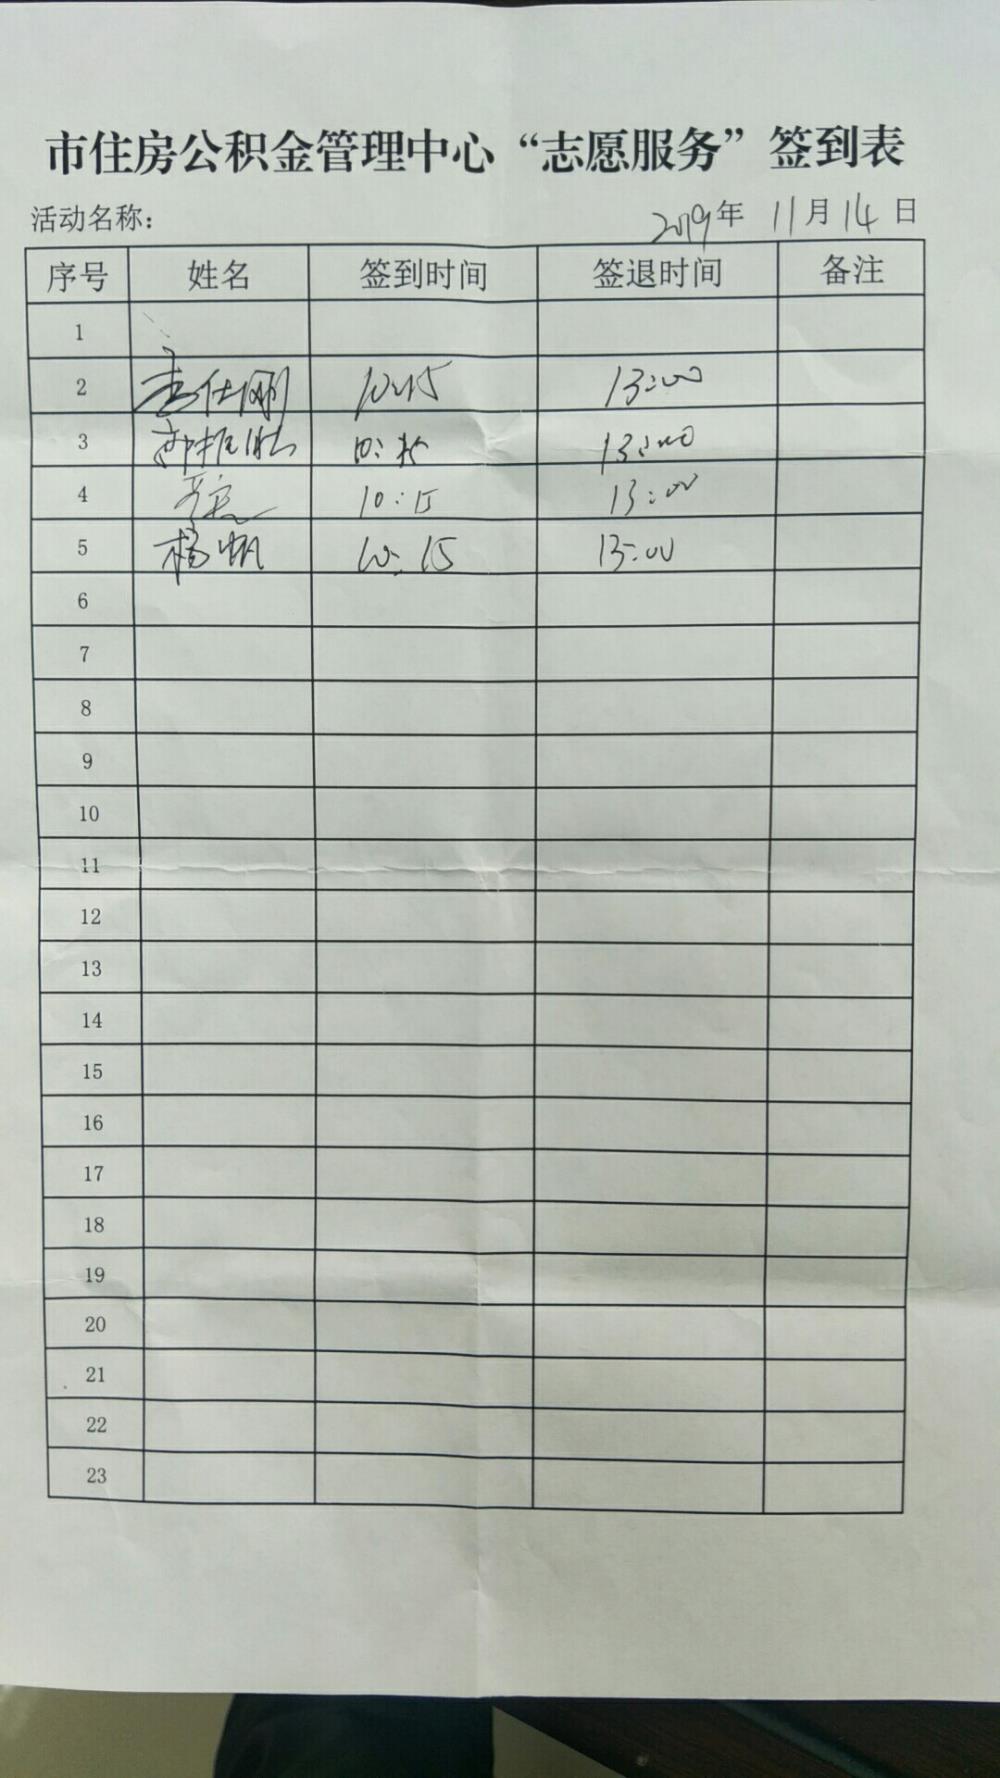 市住房公积金管理中心“志愿服务”签到表
活动名称： 2019年 11月14日
序号 姓名 签到时间 签退时间 备注
1
2 仕刚 10:15 13:00
3 10:15 13:00
4 10:15 13:00
5 杨帆 10:15 13:00
6
7
8
9
10
11
12
13
14
15
16
17
18
19
20
21
22
23